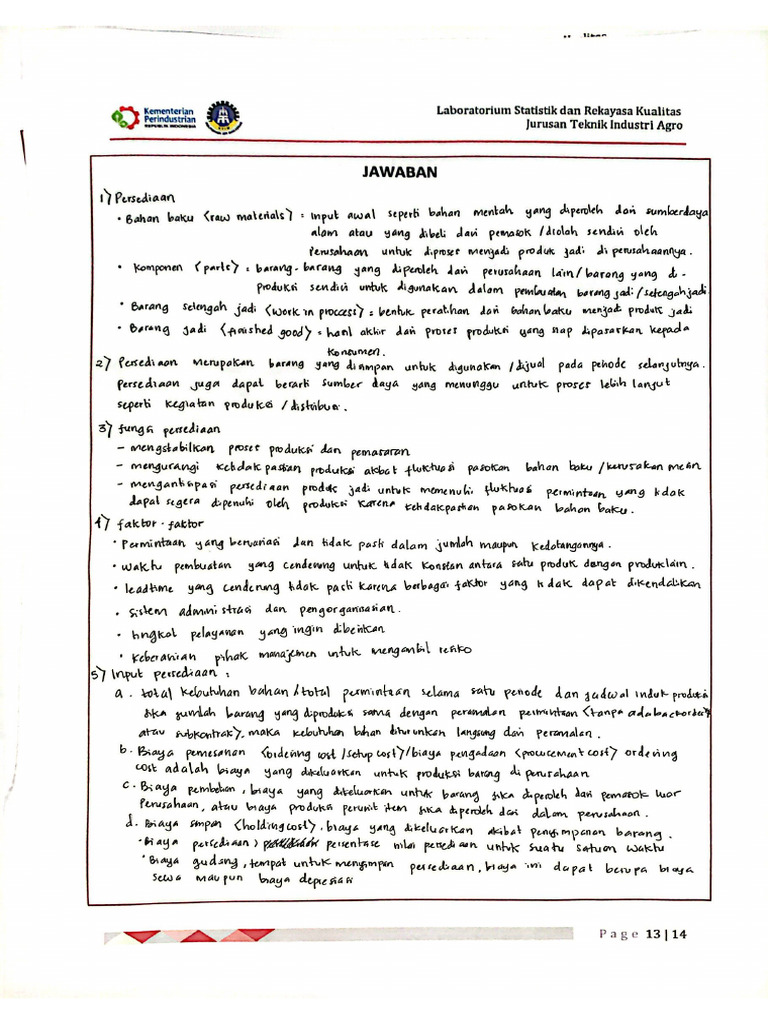 Kementerian
Perindustrian
REPUBLIK INDONESIA
Laboratorium Statistik dan Rekayasa Kualitas
Jurusan Teknik Industri Agro
JAWABAN
1) Persediaan
• Bahan baku <raw materials> = Input awal seperti bahan mentah yang diperoleh dari sumberdaya
alam atau yang dibeli dari pemasok / diolah sendiri oleh
Perusahaan untuk diproses menjadi produk jadi di perusahaannya.
• Komponen <parts> = barang-barang yang diperoleh dari perusahaan lain / barang yang di-
produksi sendiri untuk digunakan dalam pembuatan barang jadi / setengah jadi.
• Barang setengah jadi <work in process> = bentuk peralihan dari bahan baku menjadi produk jadi
• Barang jadi <finished good> = hasil akhir dari proses produksi yang siap dipasarkan kepada
konsumen.
2) Persediaan merupakan barang yang disimpan untuk digunakan / dijual pada periode selanjutnya.
Persediaan juga dapat berarti sumber daya yang menunggu untuk proses lebih lanjut
seperti kegiatan produksi / distribusi.
3) fungsi persediaan
- mengstabilkan proses produksi dan pemasaran
- mengurangi ketidakpastian produksi akibat fluktuasi pasokan bahan baku / kerusakan mesin
- mengantisipasi persediaan produk jadi untuk memenuhi fluktuasi permintaan yang tidak
dapat segera dipenuhi oleh produksi karena ketidakpastian pasokan bahan baku.
4) faktor-faktor
• Permintaan yang bervariasi dan tidak pasti dalam jumlah maupun kedatangannya.
• waktu pembuatan yang cenderung untuk tidak konstan antara satu produk dengan produk lain.
• leadtime yang cenderung tidak pasti karena berbagai faktor yang tidak dapat dikendalikan
• Sistem administrasi dan pengorganisasian.
• tingkat pelayanan yang ingin diberikan
• Keberanian pihak manajemen untuk mengambil resiko
5) Input persediaan :
a. total kebutuhan bahan / total permintaan selama satu periode dan jadwal induk produksi
jika jumlah barang yang diproduksi sama dengan peramalan permintaan <tanpa ada backorder
atau subkontrak>, maka kebutuhan bahan diturunkan langsung dari peramalan.
b. Biaya pemesanan <ordering cost / setup cost> / biaya pengadaan <procurement cost> ordering
cost adalah biaya yang dikeluarkan untuk produksi barang di perusahaan
c. Biaya pembelian, biaya yang dikeluarkan untuk barang jika diperoleh dari pemasok luar
Perusahaan, atau biaya produksi perunit item jika diperoleh dari dalam perusahaan.
d. Biaya simpan <holding cost>, biaya yang dikeluarkan akibat penyimpanan barang.
• Biaya persediaan, persentase nilai persediaan untuk suatu satuan waktu
• Biaya gudang, tempat untuk menyimpan persediaan, biaya ini dapat berupa biaya
sewa maupun biaya depresiasi
Page 13 | 14